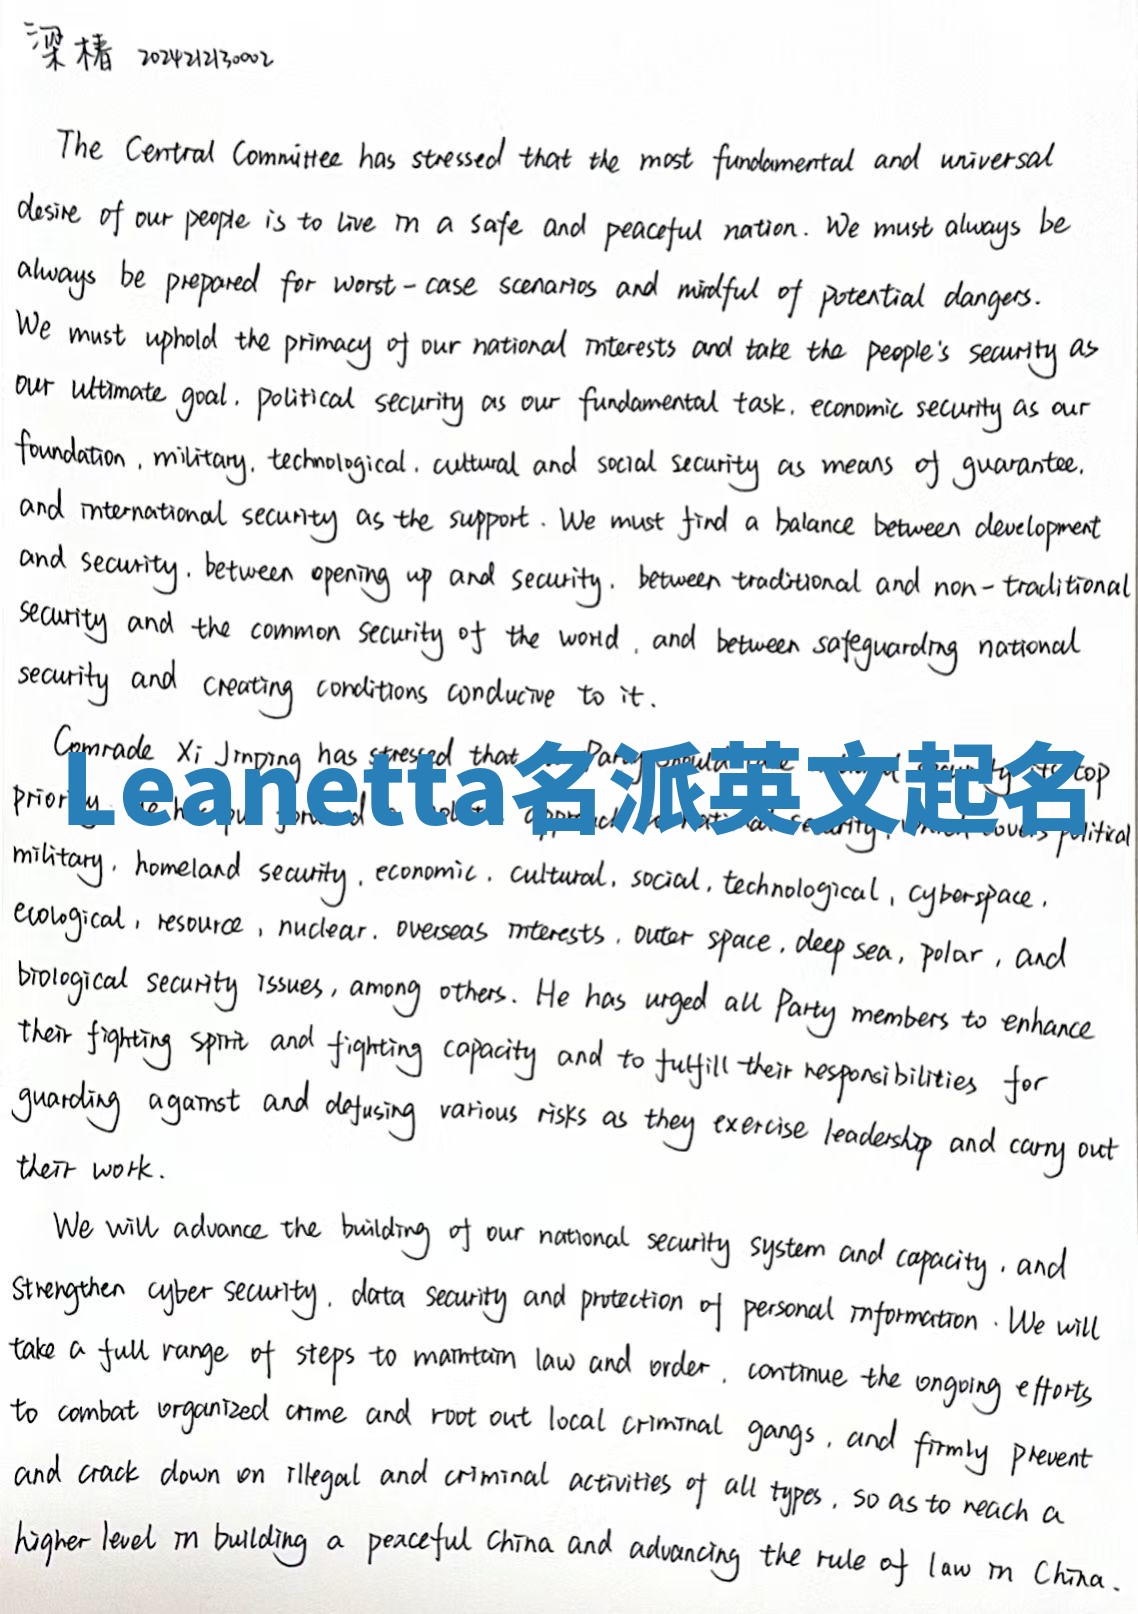 梁椿 2024212130002
The Central Committee has stressed that the most fundamental and universal
desire of our people is to live in a safe and peaceful nation. We must always be
always be prepared for worst-case scenarios and mindful of potential dangers.
We must uphold the primacy of our national interests and take the people's security as
our ultimate goal, political security as our fundamental task, economic security as our
foundation, military, technological, cultural and social security as means of guarantee,
and international security as the support. We must find a balance between development
and security, between opening up and security, between traditional and non-traditional
security and the common security of the world, and between safeguarding national
security and creating conditions conducive to it.
Comrade Xi Jinping has stressed that Party should security its top
Leanetta名派英文起名
priority. He has put forward a approach to national security, which covers political
military, homeland security, economic, cultural, social, technological, cyberspace,
ecological, resource, nuclear, overseas interests, outer space, deep sea, polar, and
biological security issues, among others. He has urged all Party members to enhance
their fighting spirit and fighting capacity and to fulfill their responsibilities for
guarding against and defusing various risks as they exercise leadership and carry out
their work.
We will advance the building of our national security system and capacity, and
strengthen cyber security, data security and protection of personal information. We will
take a full range of steps to maintain law and order, continue the ongoing efforts
to combat organized crime and root out local criminal gangs, and firmly prevent
and crack down on illegal and criminal activities of all types, so as to reach a
higher level in building a peaceful China and advancing the rule of law in China.